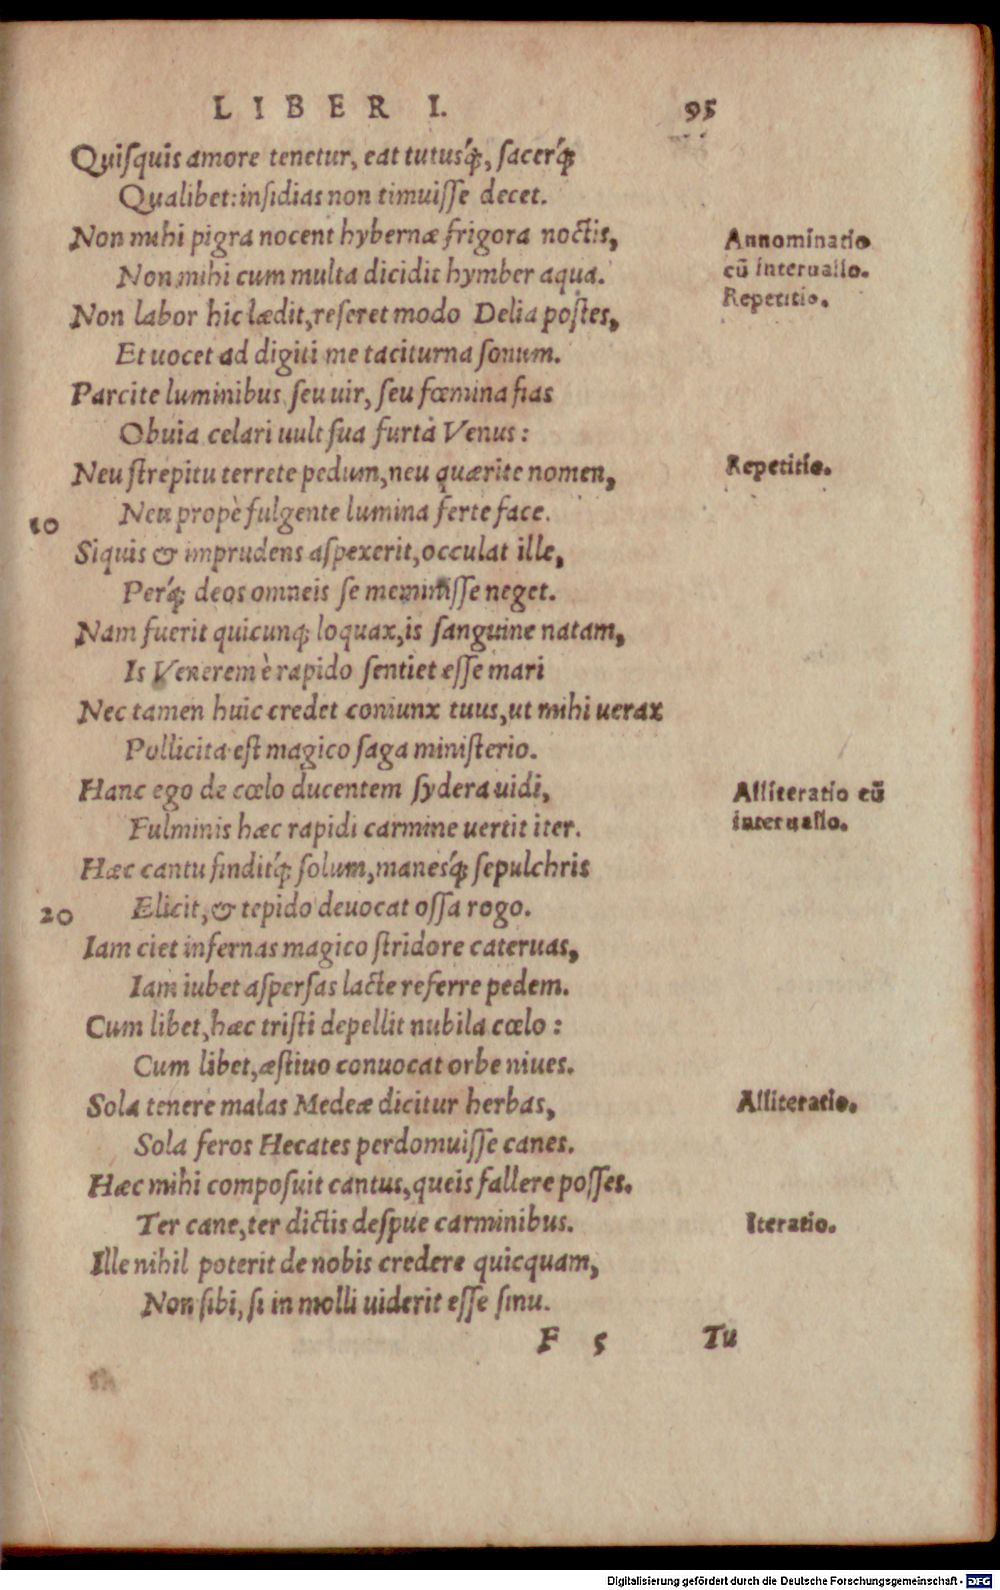 LIBER I. 95
Quiſquis amore tenetur, eat tutusq́;, ſacerq́;
Qualibet: inſidias non timuiſſe decet.
Non mihi pigra nocent hybernæ frigora noctis,
Annominatio
Non mihi cum multa dicidit hymber aqua.
cū interuallo.
Non labor hic lædit, reſeret modo Delia poſtes,
Repetitio.
Et uocet ad digiti me taciturna ſonum.
Parcite luminibus ſeu uir, ſeu fœmina fias
Obuia celari uult ſua furta Venus:
Neu ſtrepitu terrete pedum, neu quærite nomen,
Repetitio.
10 Neu propè fulgente lumina ferte face.
Siquis & imprudens aſpexerit, occulat ille,
Perq́; deos omneis ſe meminiſſe neget.
Nam fuerit quicunq; loquax, is ſanguine natam,
Is Venerem è rapido ſentiet eſſe mari
Nec tamen huic credet coniunx tuus, ut mihi uerax
Pollicita eſt magico ſaga miniſterio.
Hanc ego de cœlo ducentem ſydera uidi,
Alliteratio cū
Fulminis hæc rapidi carmine uertit iter.
interuallo.
Hæc cantu finditq́; ſolum, manesq́; ſepulchris
20 Elicit, & tepido deuocat oſſa rogo.
Iam ciet infernas magico ſtridore cateruas,
Iam iubet aſperſas lacte referre pedem.
Cum libet, hæc triſti depellit nubila cœlo:
Cum libet, æſtiuo conuocat orbe niues.
Sola tenere malas Medeæ dicitur herbas,
Alliteratio.
Sola feros Hecates perdomuiſſe canes.
Hæc mihi compoſuit cantus, queis fallere poſſes.
Ter cane, ter dictis deſpue carminibus.
Iteratio.
Ille nihil poterit de nobis credere quicquam,
Non ſibi, ſi in molli uiderit eſſe ſinu.
F 5 Tu
Digitalisierung gefördert durch die Deutsche Forschungsgemeinschaft - DFG